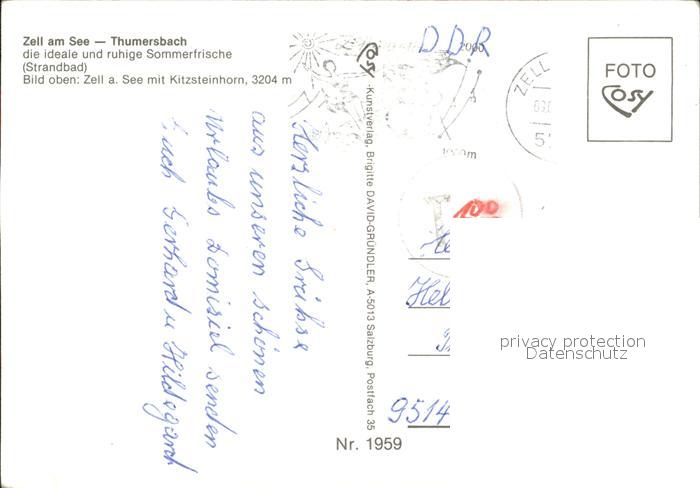 Zell am See — Thumersbach
die ideale und ruhige Sommerfrische
(Strandbad)
Bild oben: Zell a. See mit Kitzsteinhorn, 3204 m
Herzliche Grüße
aus unseren schönen
Urlaubs Domiziel senden
Euch Gerhard u Hildegard
Cosy
-Kunstverlag, Brigitte DAVID-GRÜNDLER, A-5013 Salzburg, Postfach 35
Nr. 1959
DDR
2000
ZELL
FOTO
Cosy
T
100
Hel
9514
privacy protection
Datenschutz